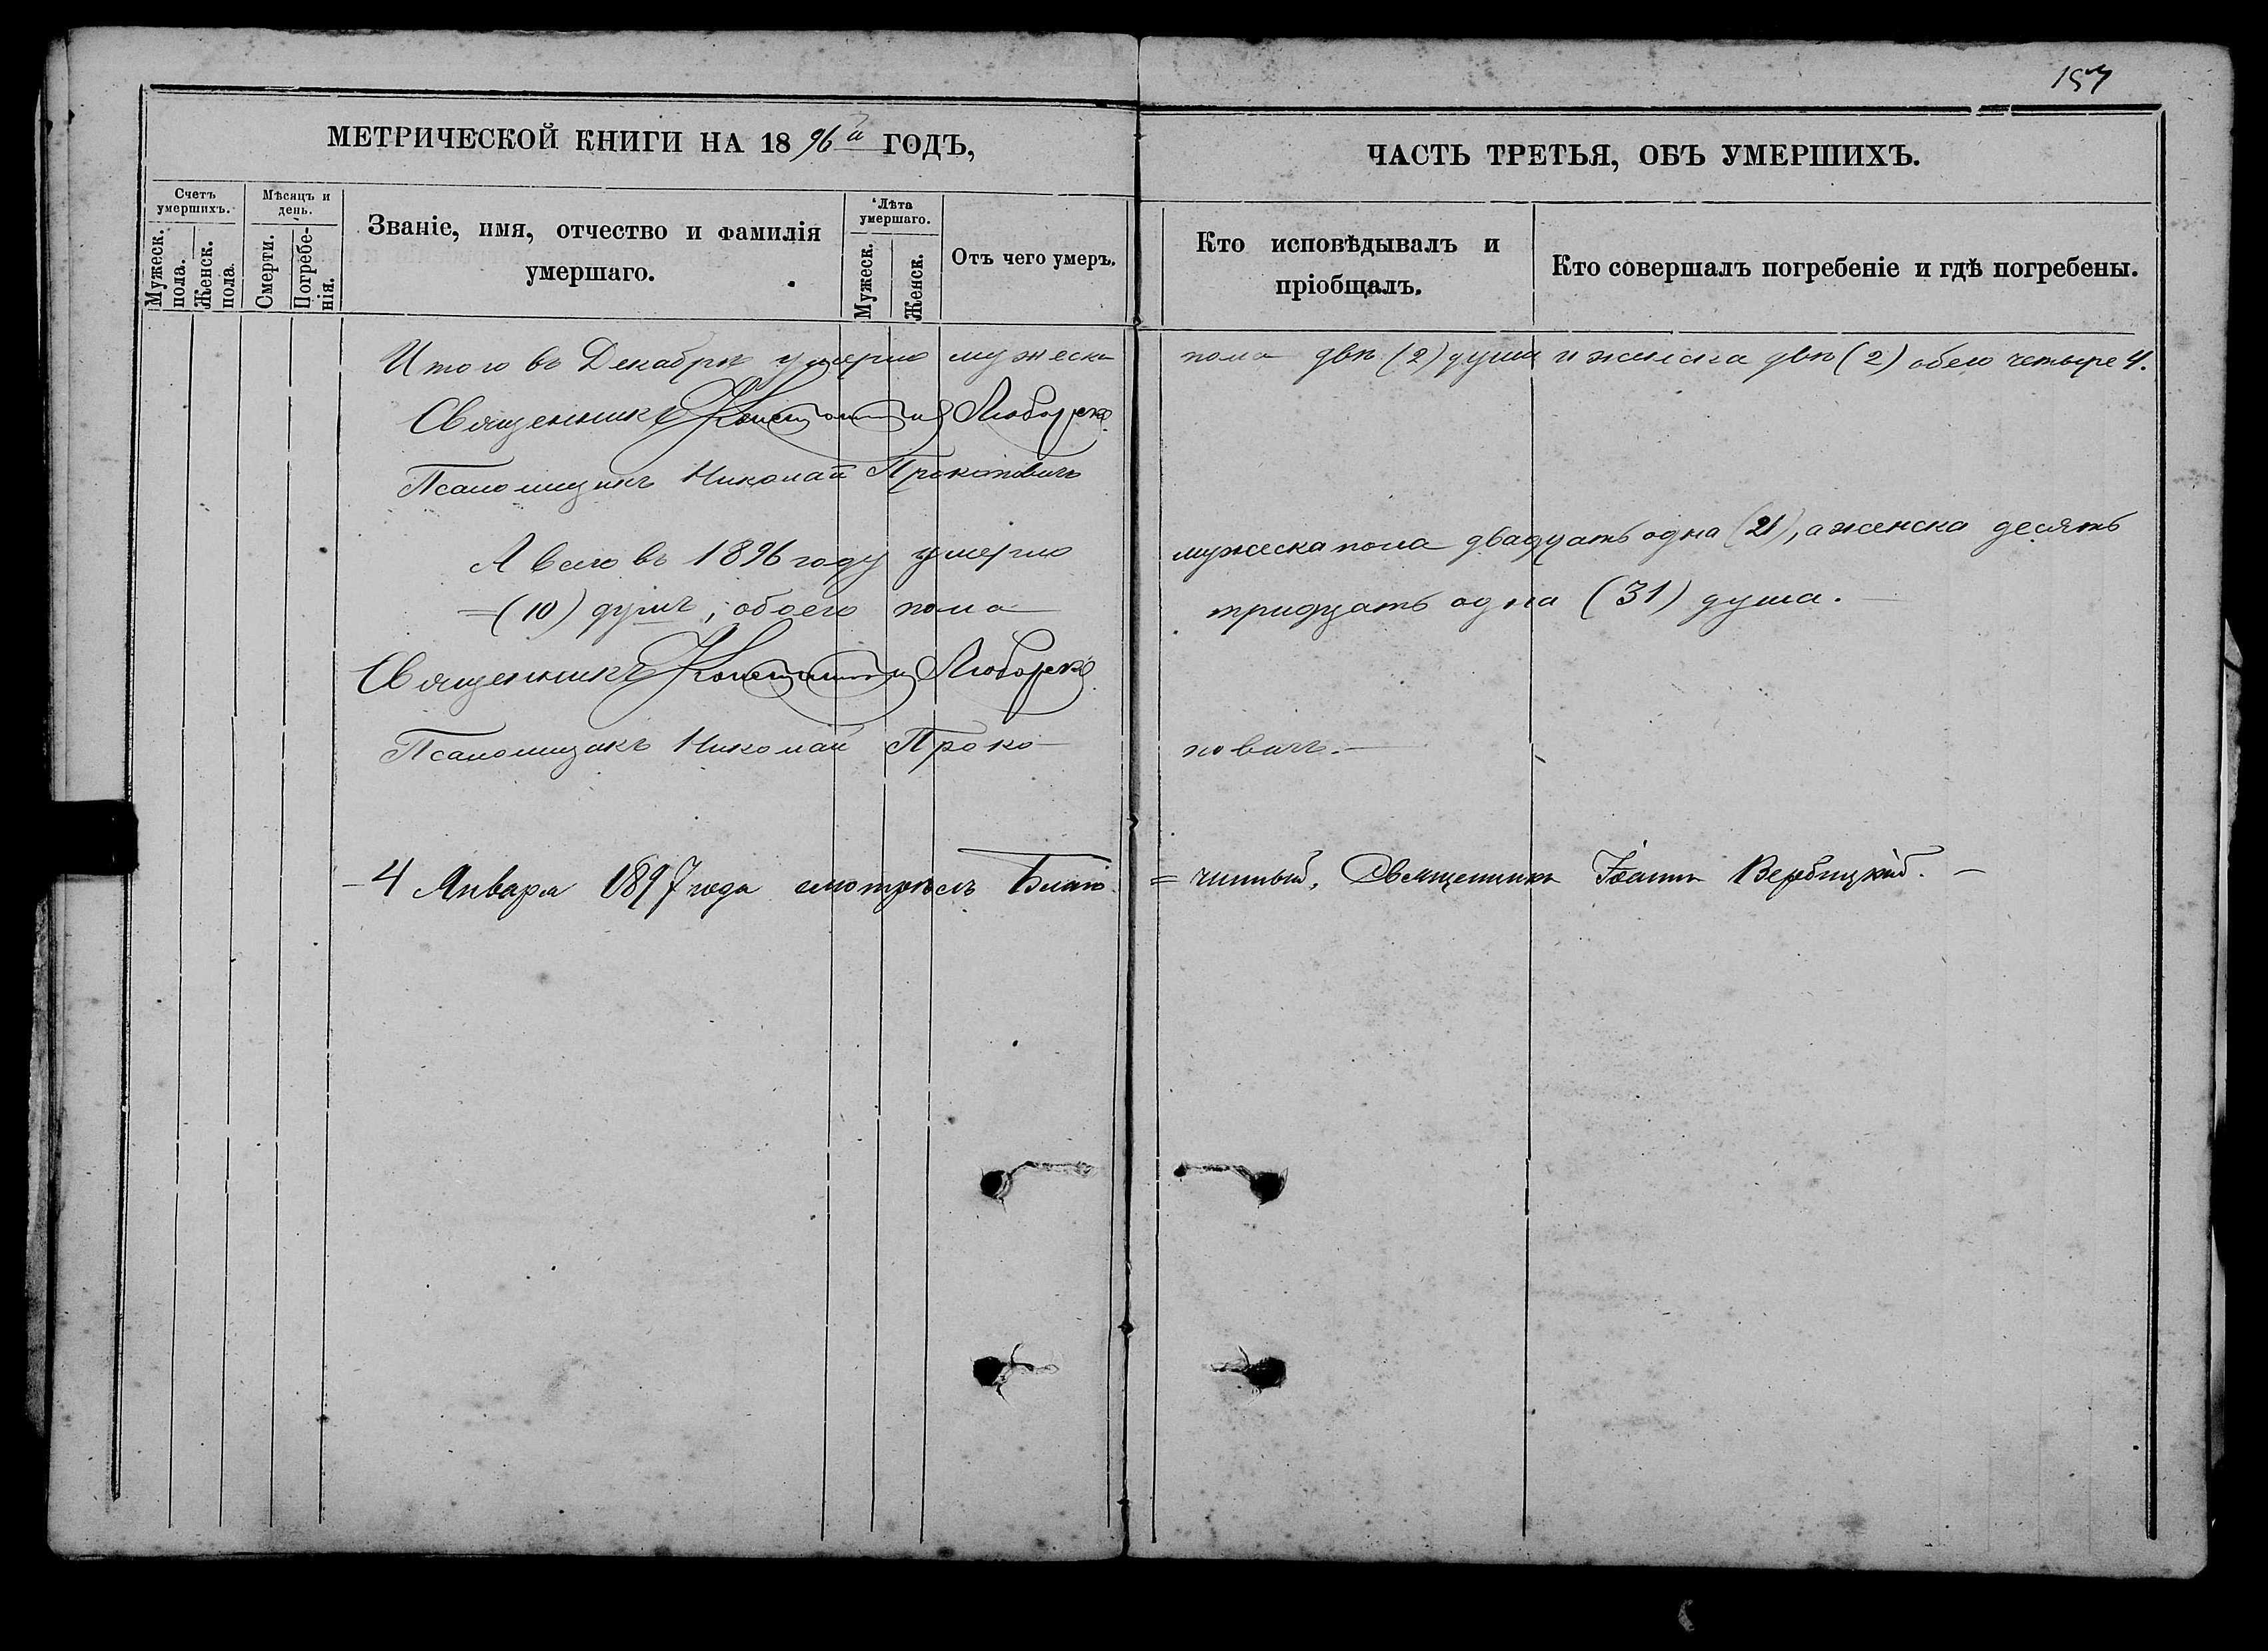 157
МЕТРИЧЕСКОЙ КНИГИ НА 1896й ГОДЪ,
ЧАСТЬ ТРЕТЬЯ, ОБЪ УМЕРШИХЪ.
Счетъ умершихъ.
Мужеск. пола.
Женск. пола.
Мѣсяцъ и день.
Смерти.
Погребенія.
Званіе, имя, отчество и фамилія
умершаго.
Лѣта умершаго.
Мужеск.
Женск.
Отъ чего умеръ.
Кто исповѣдывалъ и
пріобщалъ.
Кто совершалъ погребеніе и гдѣ погребены.
Итого въ Декабрѣ умерло мужеска пола двѣ (2) души и женска двѣ (2) обего четыре 4.
Священникъ Константинъ
Псаломщикъ Николай Прокоповичъ
А всего въ 1896 году умерло мужеска пола двадцать одна (21), а женска десять
=(10) душъ, обоего пола тридцать одна (31) душа.
Священникъ Константинъ
Псаломщикъ Николай Проко- повичъ.-
- 4 Января 1897 года смотрѣлъ Благо= чинный, Священникъ Іоаннъ Вербицкій. -